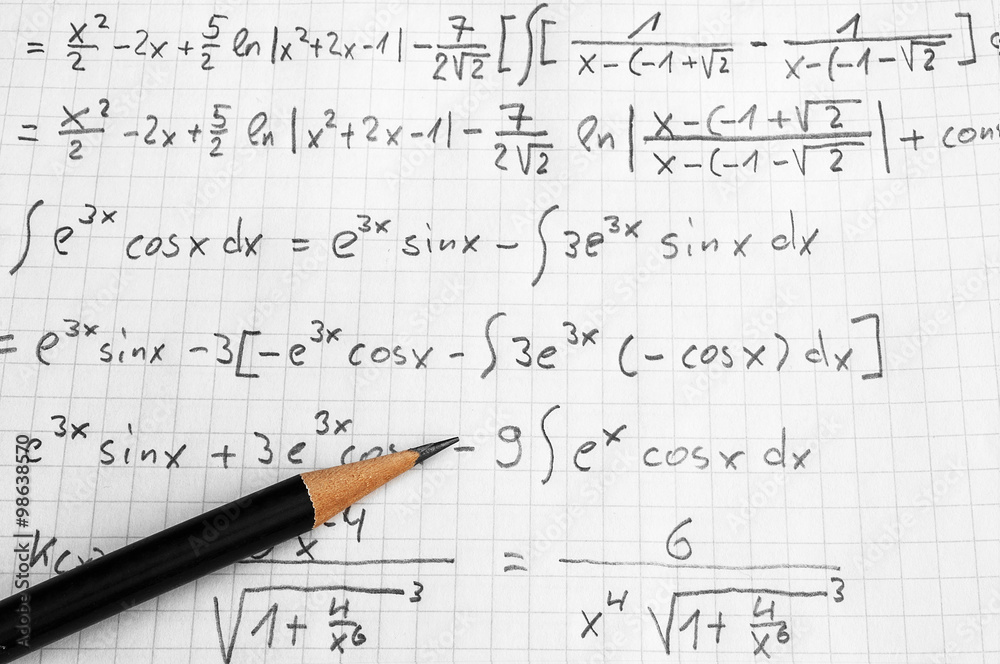 = x²/2 - 2x + 5/2 ln |x²+2x-1| - 7/(2√2) [∫[ 1/(x-(-1+√2) - 1/(x-(-1-√2) ]
= x²/2 - 2x + 5/2 ln |x²+2x-1| - 7/(2√2) ln | (x-(-1+√2)/(x-(-1-√2) | + con
∫ e^3x cosx dx = e^3x sinx - ∫ 3e^3x sinx dx
= e^3x sinx - 3[-e^3x cosx - ∫ 3e^3x (-cosx) dx]
e^3x sinx + 3e^3x cos - 9 ∫ e^x cosx dx
x^-4 / √(1+4/x⁶)³ = 6 / (x⁴ √(1+4/x⁶)³)
Adobe Stock | #98638570